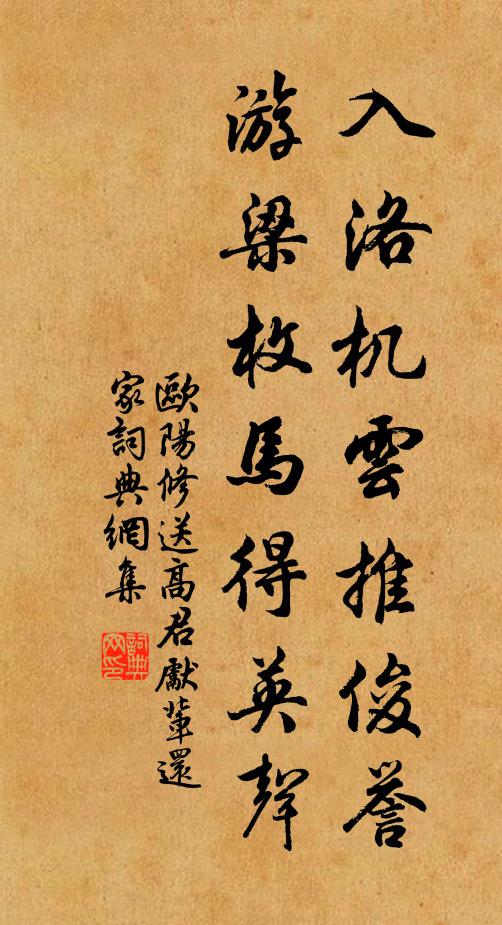 入洛机雲推俊誉
游梁枚馬得英聲
歐陽修送高君獻輩還
家詞典網集
詞典網印